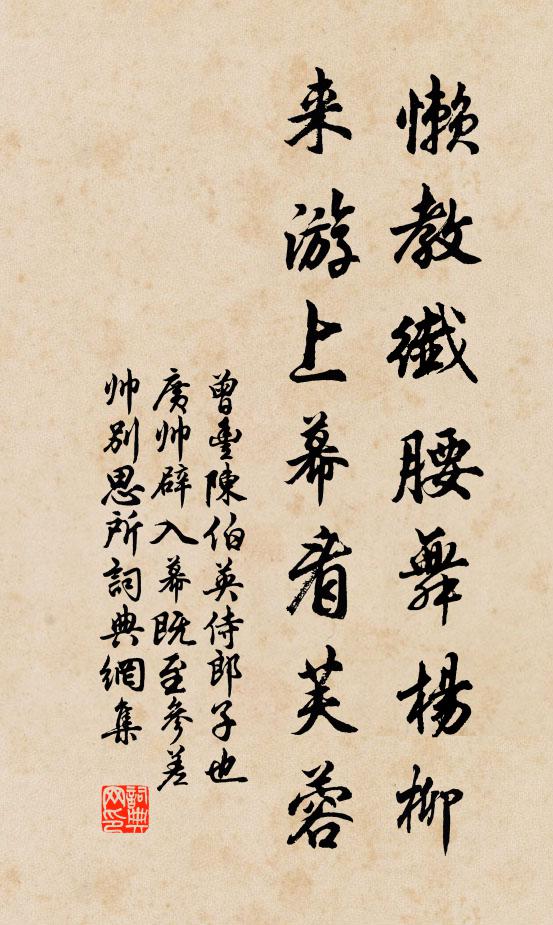 懒教纖腰舞楊柳
来游上幕看芙蓉
曾豐陳伯英侍郎子也
廣帅辟入幕既至參差
帅别思所詞典網集
詞典
网印